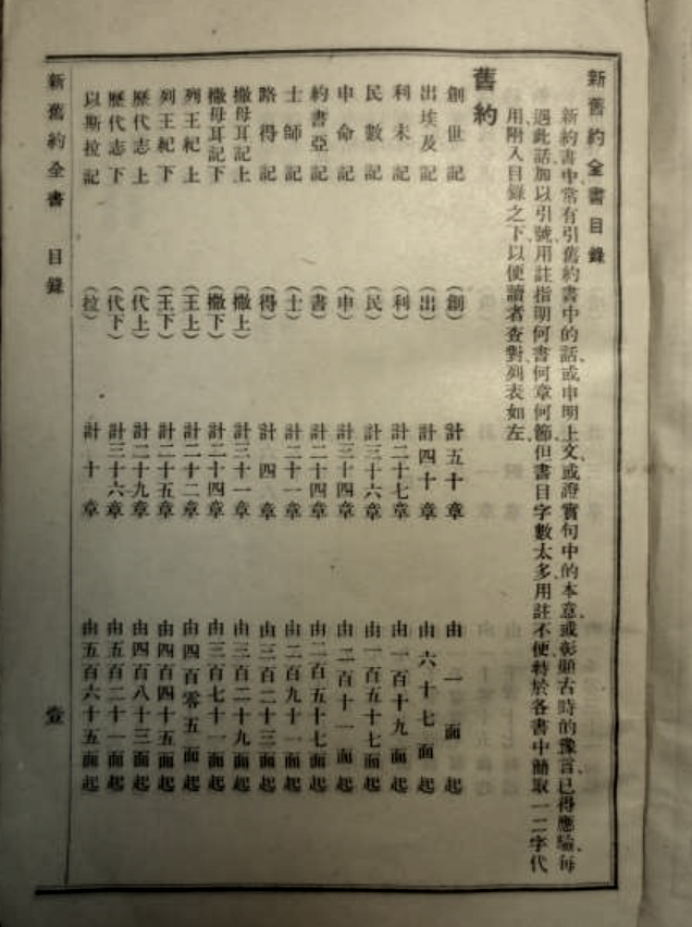 新舊約全書目錄
新約書中、常有引舊約書中的話、或申明上文、或證實句中的本意、或彰顯古時的豫言、已得應驗、每
遇此話加以引號、用註指明何書何章何節、但書目字數太多、用註不便、特於各書中簡取一二字代
用、附入目錄之下、以便讀者查對、列表如左、
舊約
創世記 (創) 計五十章 由一面起
出埃及記 (出) 計四十章 由六十七面起
利未記 (利) 計二十七章 由一百十九面起
民數記 (民) 計三十六章 由一百五十七面起
申命記 (申) 計三十四章 由二百十一面起
約書亞記 (書) 計二十四章 由二百五十七面起
士師記 (士) 計二十一章 由二百九十一面起
路得記 (得) 計四章 由三百二十三面起
撒母耳記上 (撒上) 計三十一章 由三百二十九面起
撒母耳記下 (撒下) 計二十四章 由三百七十一面起
列王紀上 (王上) 計二十二章 由四百零五面起
列王紀下 (王下) 計二十五章 由四百四十五面起
歷代志上 (代上) 計二十九章 由四百八十三面起
歷代志下 (代下) 計三十六章 由五百二十一面起
以斯拉記 (拉) 計十章 由五百六十五面起
新舊約全書 目錄 壹